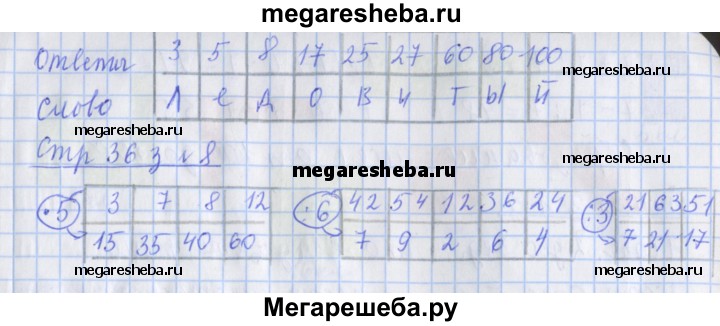 megaresheba.ru
Ответы 3 5 8 17 25 27 60 80 100
megaresheba.ru
Слово Л е д о в и т ы й
megaresheba.ru
megaresheba.ru
Стр 36 з 8
megaresheba.ru
·5 3 7 8 12 :6 42 54 12 36 24 :3 21 63 51
15 35 40 60 7 9 2 6 4 7 21 17
megaresheba.ru
megaresheba.ru
Мегарешеба.ру